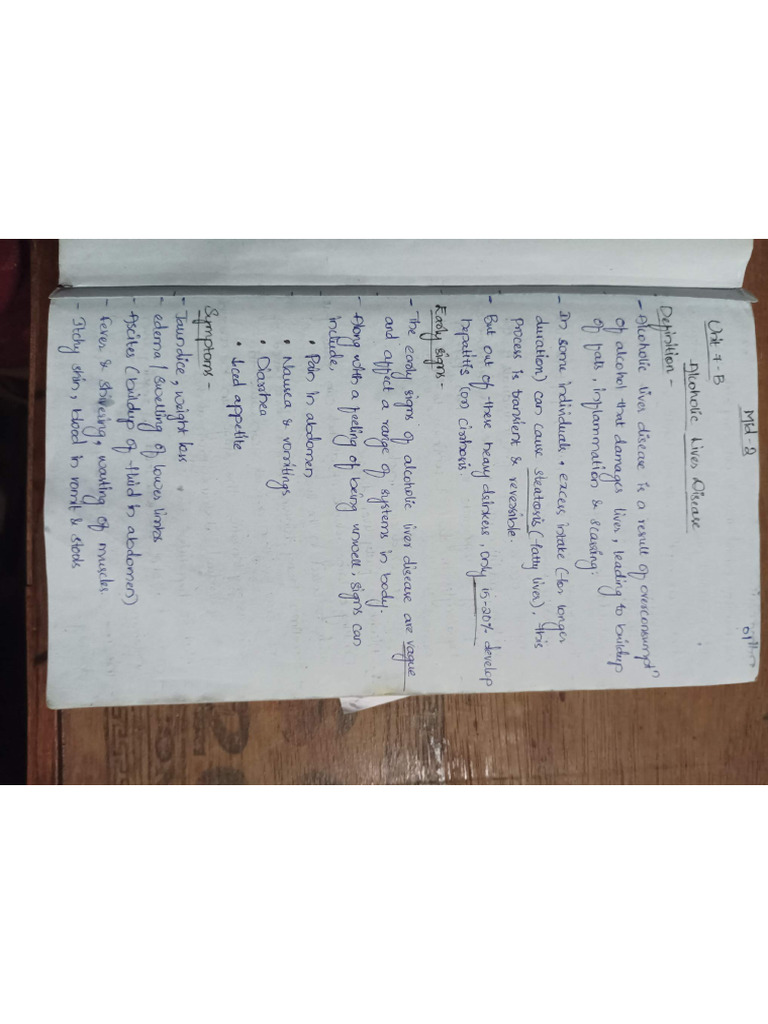 Mid - 2
Unit 7 - B
Alcoholic Liver Disease
Definition -
- Alcoholic liver disease is a result of overconsumptn
of alcohol that damages liver, leading to buildup
of fats, inflammation & scarring.
- In some individuals, excess intake (for longer
duration) can cause steatosis (fatty liver). This
process is transient & reversible.
- But out of these heavy drinkers, only 15-20% develop
hepatitis (or) cirrhosis.
Early signs -
- The early signs of alcoholic liver disease are vague
and affect a range of systems in body.
- Along with a feeling of being unwell, signs can
include,
• Pain in abdomen
• Nausea & vomitings
• Diarrhea
• ↓ced appetite
Symptoms -
- Jaundice, weight loss
- edema / swelling of lower limbs
- Ascites (buildup of fluid in abdomen)
- Fever & shivering, wasting of muscles
- Itchy skin, blood in vomit & stools